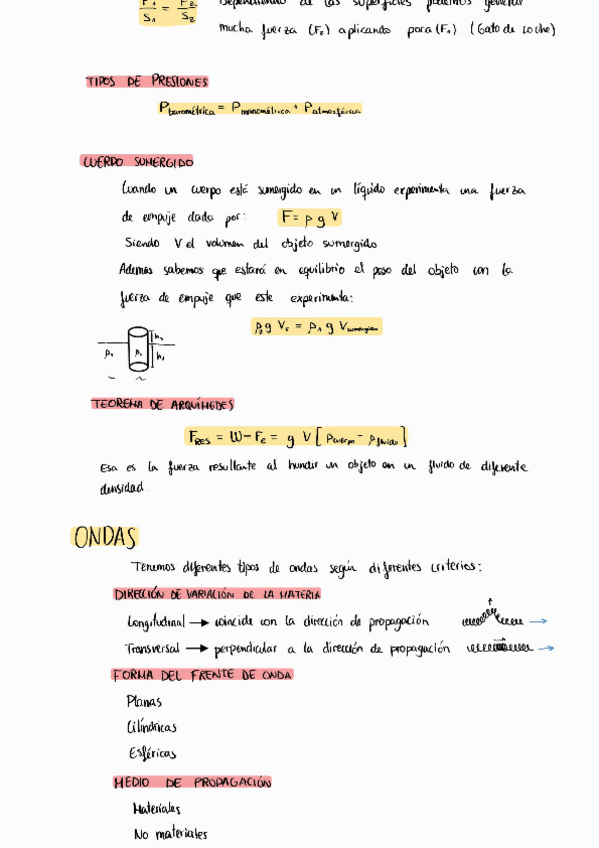 F₁/S₁ = F₂/S₂ Dependiendo de las superficies podemos generar
mucha fuerza (F₂) aplicando poca (F₁) (Gato de coche)
TIPOS DE PRESIONES
P barométrica = P manométrica + P atmosférica
CUERPO SUMERGIDO
Cuando un cuerpo está sumergido en un líquido experimenta una fuerza
de empuje dada por: F = ρ g V
Siendo V el volumen del objeto sumergido
Ademas sabemos que estará en equilibrio el peso del objeto con la
fuerza de empuje que este experimenta:
ρ₂ g V_T = ρ₁ g V sumergido
h₂
ρ₁ ρ₂ h₁
TEOREMA DE ARQUÍMEDES
F RES = W - Fe = g V [ρ cuerpo - ρ fluido]
Esa es la fuerza resultante al hundir un objeto en un fluido de diferente
densidad
ONDAS
Tenemos diferentes tipos de ondas según diferentes criterios:
DIRECCIÓN DE VARIACIÓN DE LA MATERIA
Longitudinal → coincide con la dirección de propagación
Transversal → perpendicular a la dirección de propagación
FORMA DEL FRENTE DE ONDA
Planas
Cilíndricas
Esféricas
MEDIO DE PROPAGACIÓN
Materiales
No materiales